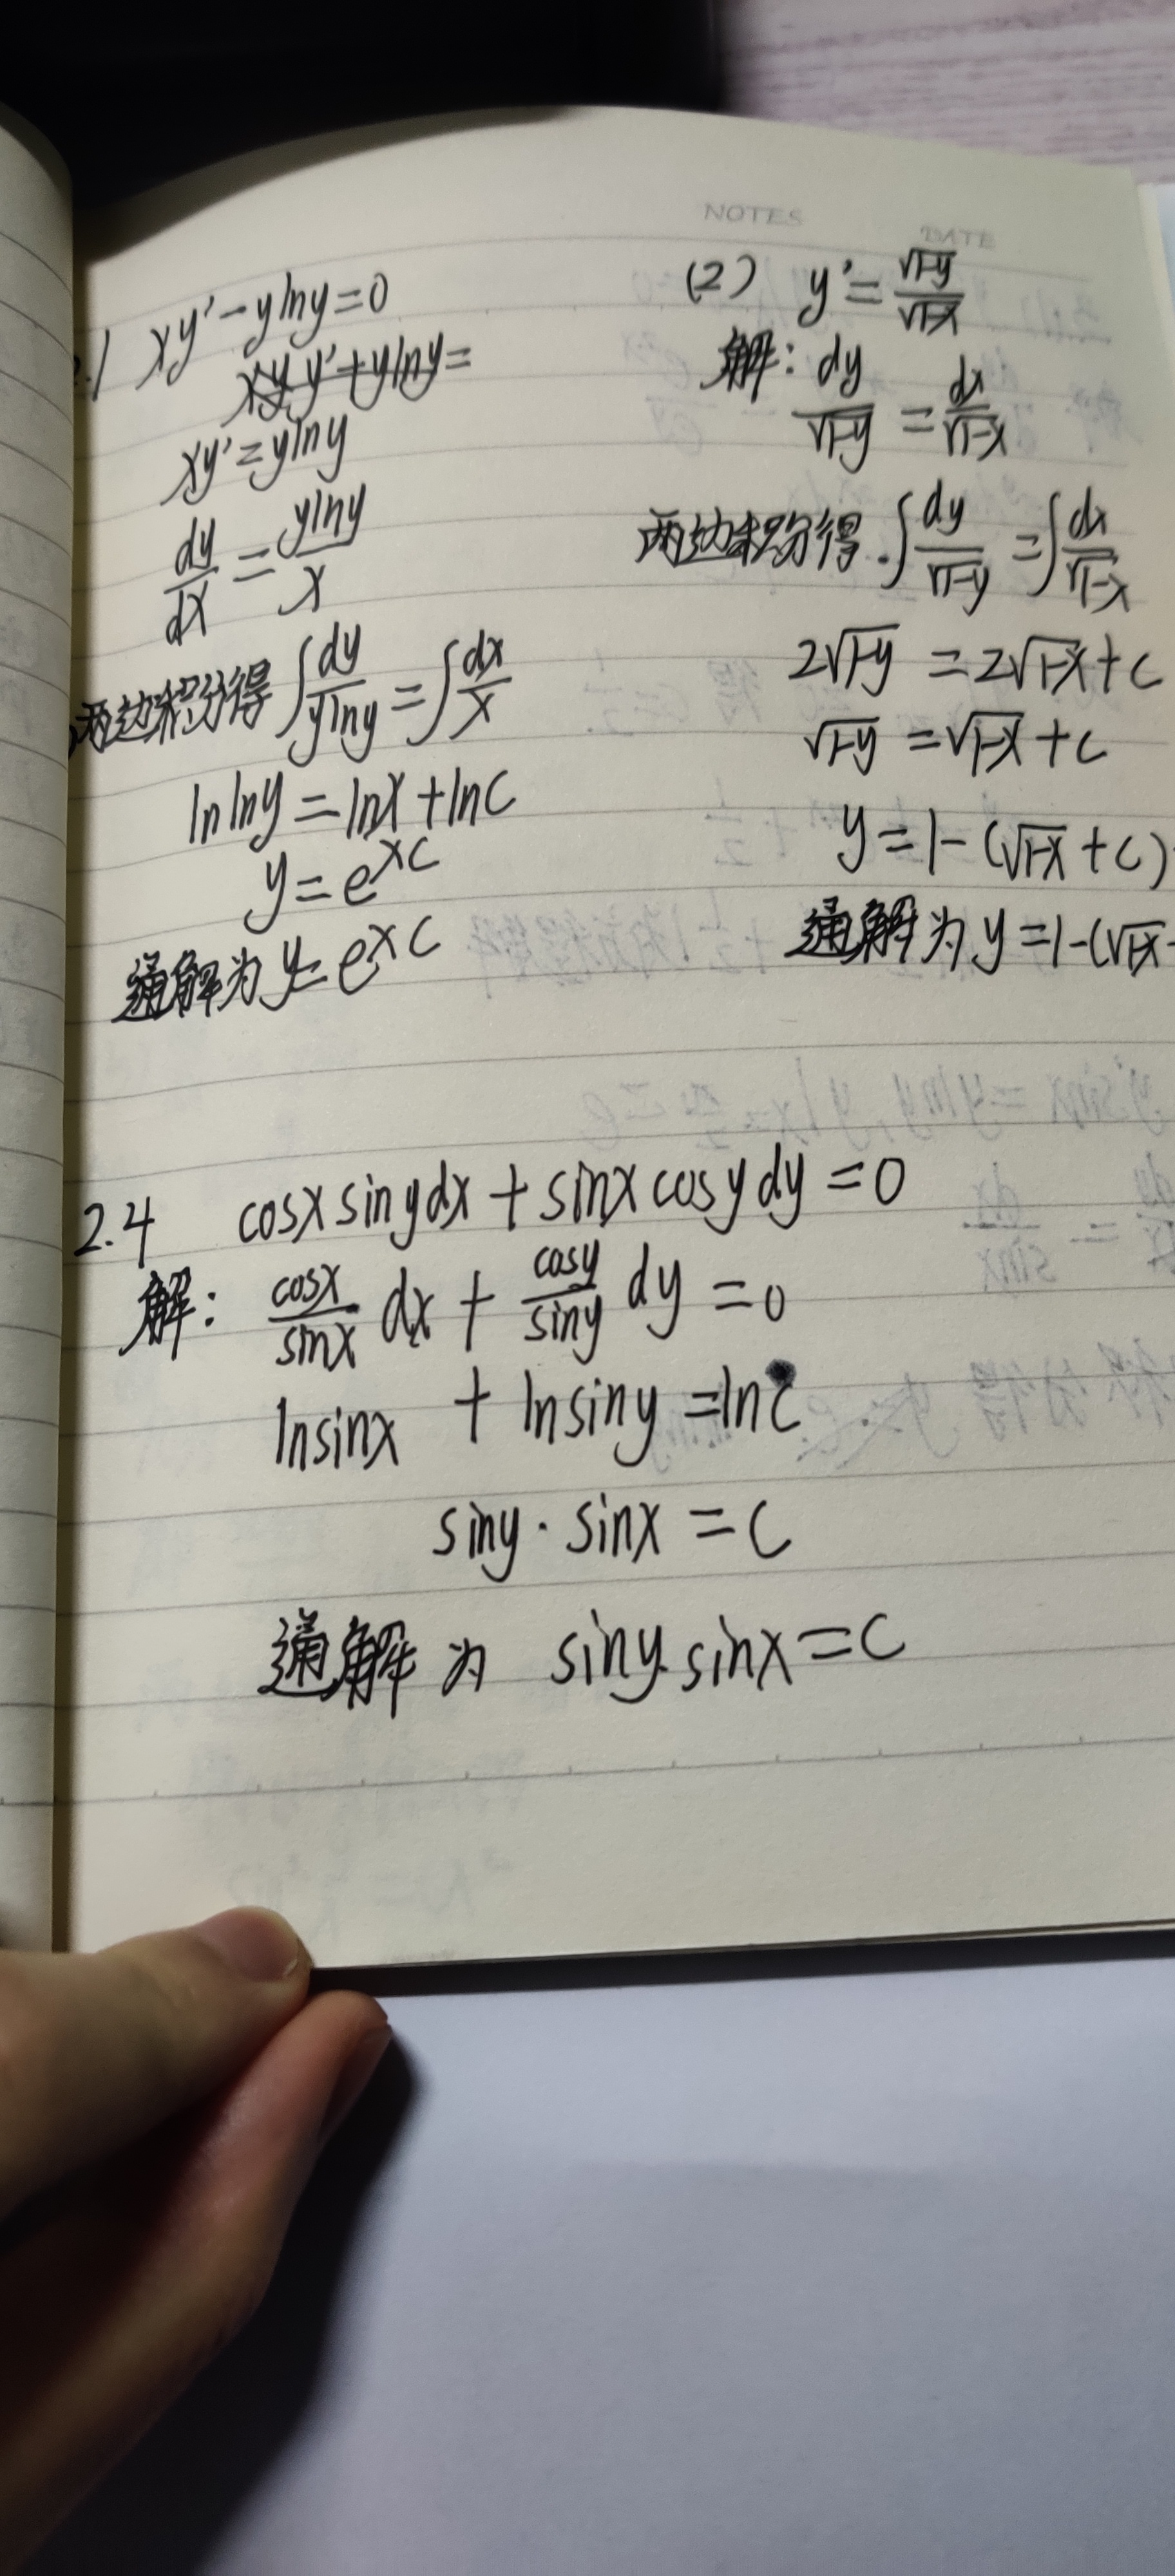 NOTES
DATE
.1 xy'-ylny=0
xy y'+ylny=
xy'=ylny
dy/dx = ylny/x
两边积分得 ∫dy/ylny = ∫dx/x
lnlny=lnx+lnC
y=e^xc
通解为y=e^xc
(2) y'=√1-y/√1-x
解: dy/√1-y = dx/√1-x
两边积分得. ∫dy/√1-y = ∫dx/√1-x
2√1-y = 2√1-x+c
√1-y =√1-x+c
y=1-(√1-x+c)
通解为y=1-(√1-x
2.4 cosxsinydx+sinxcosydy=0
解: cosx/sinx dx + cosy/siny dy =0
lnsinx + lnsiny =lnc
siny·sinx=C
通解为 siny.sinx=C